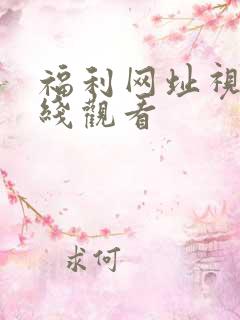 福利网址視
綫觀看
求何